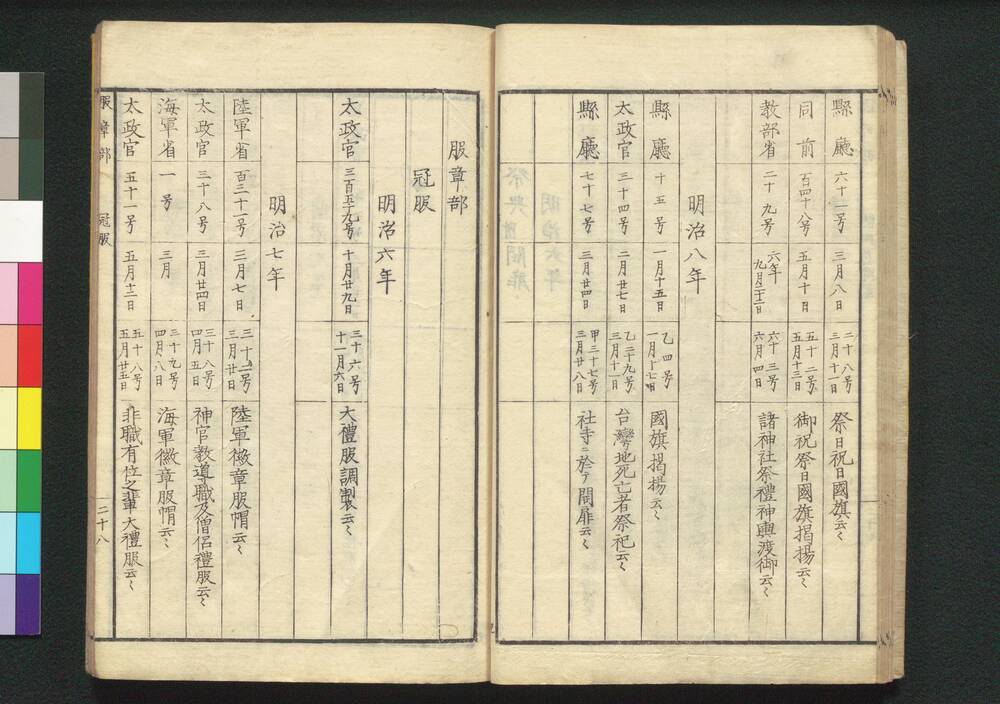 縣廳 六十一号 三月八日 二十八号 三月十一日 祭日祝日國旗云々
同前 百四十八号 五月十日 五十二号 五月十三日 御祝祭日國旗揭揚云々
教部省 二十九号 六年九月二十二日 六十三号 六月四日 諸神社祭禮神輿渡御云々
明治八年
縣廳 十五号 一月十五日 乙四号 一月十七日 國旗揭揚云々
太政官 三十四号 二月廿七日 乙二十九号 三月十一日 台灣地死亡者祭祀云々
縣廳 七十七号 三月廿四日 甲三十七号 三月廿八日 社寺ニ於テ開扉云々
服章部
冠服
明治六年
太政官 三百五十九号 十月廿九日 三十六号 十一月六日 大禮服調製云々
明治七年
陸軍省 百三十一号 三月七日 三十二号 三月廿日 陸軍徽章服帽云々
太政官 三十八号 三月廿四日 三十八号 四月五日 神官教導職及僧侶禮服云々
海軍省 一号 三月 三十九号 四月八日 海軍徽章服帽云々
太政官 五十一号 五月十二日 五十八号 五月廿五日 非職有位之輩大禮服云々
服章部 冠服 二十八